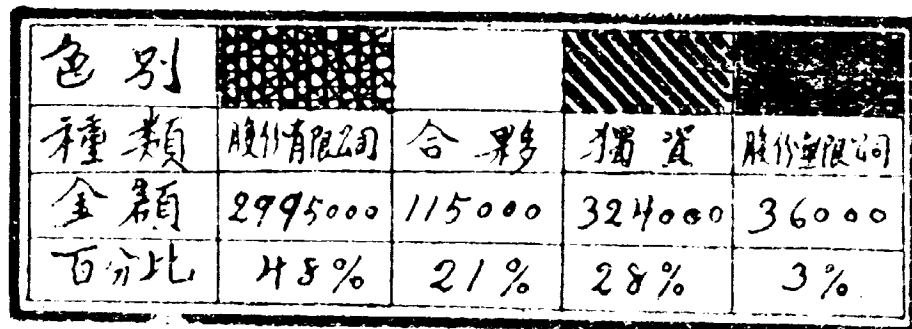 色別
種類 股份有限公司 合夥 獨資 股份無限公司
金額 2995000 115000 324000 36000
百分比 48% 21% 28% 3%